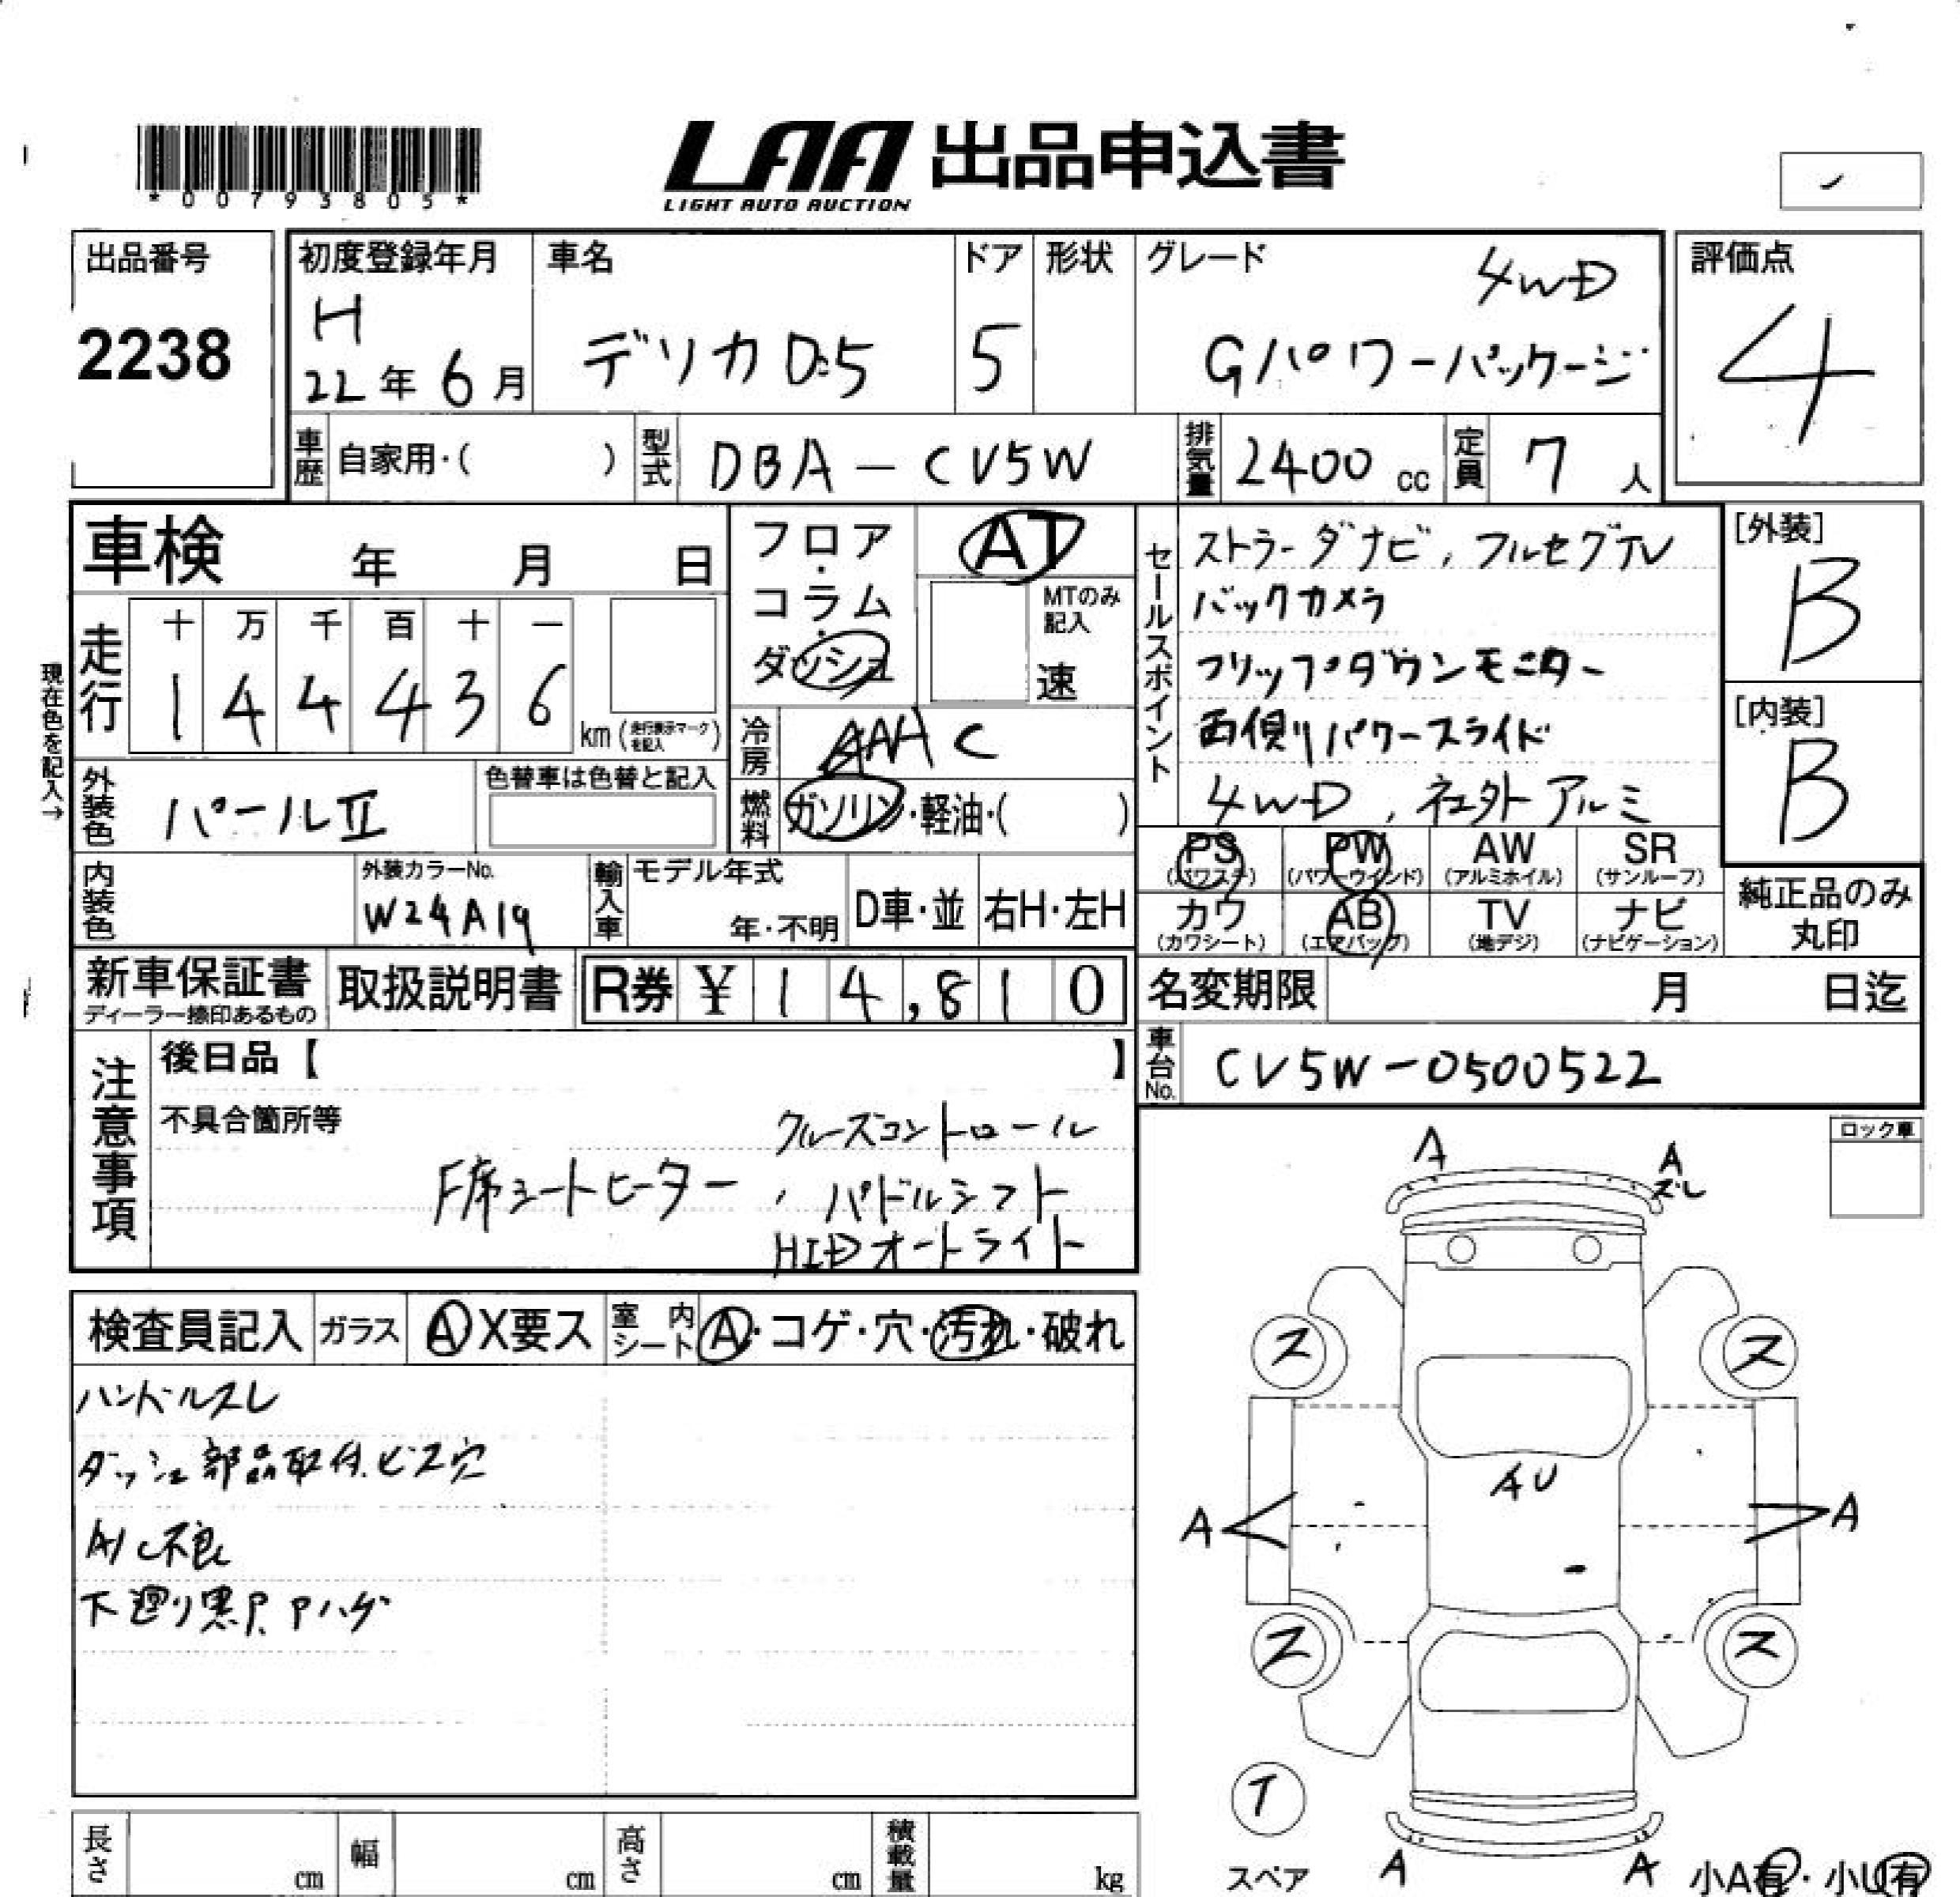 *00793805*
LAA 出品申込書
LIGHT AUTO AUCTION
出品番号
2238
初度登録年月
H
22年 6月
車名
デリカD:5
ドア
5
形状
グレード
4WD
Gパワーパッケージ
評価点
4
車歴 自家用・( )
型式 DBA-CV5W
排気量 2400 cc
定員 7 人
車検 年 月 日
フロア・コラム・ダッシュ
AT
MTのみ記入
速
走行
十 万 千 百 十 一
1 4 4 4 3 6
km (走行表示マークを記入)
現在色を記入→
冷房 C
燃料 ガソリン・軽油・( )
外装色 パールⅡ
色替車は色替と記入
セールスポイント
ストラーダナビ, フルセグTV
バックカメラ
フリップダウンモニター
両側パワースライド
4WD, 社外アルミ
[外装]
B
[内装]
B
PS (パワステ)
PW (パワーウインド)
AW (アルミホイル)
SR (サンルーフ)
カワ (カワシート)
AB (エアバッグ)
TV (地デジ)
ナビ (ナビゲーション)
純正品のみ
丸印
内装色
外装カラーNo.
W24A19
輸入車
モデル年式
年・不明
D車・並
右H・左H
新車保証書
ディーラー捺印あるもの
取扱説明書
R券 ¥ 14,810
名変期限 月 日迄
車台No. CV5W-0500522
注意事項
後日品【 】
不具合箇所等
クルーズコントロール
F席シートヒーター, パドルシフト
HIDオートライト
ロック車
検査員記入
ガラス A X要ス
室内シート A・コゲ・穴・汚れ・破れ
ハンドルスレ
ダッシュ部品取付.ビス穴
A/C不良
下廻り黒P. Pハゲ
A
A
ズレ
ス
ス
AU
A
A
ス
ス
T
スペア
A
A
小A有・小U有
長さ cm
幅 cm
高さ cm
積載量 kg